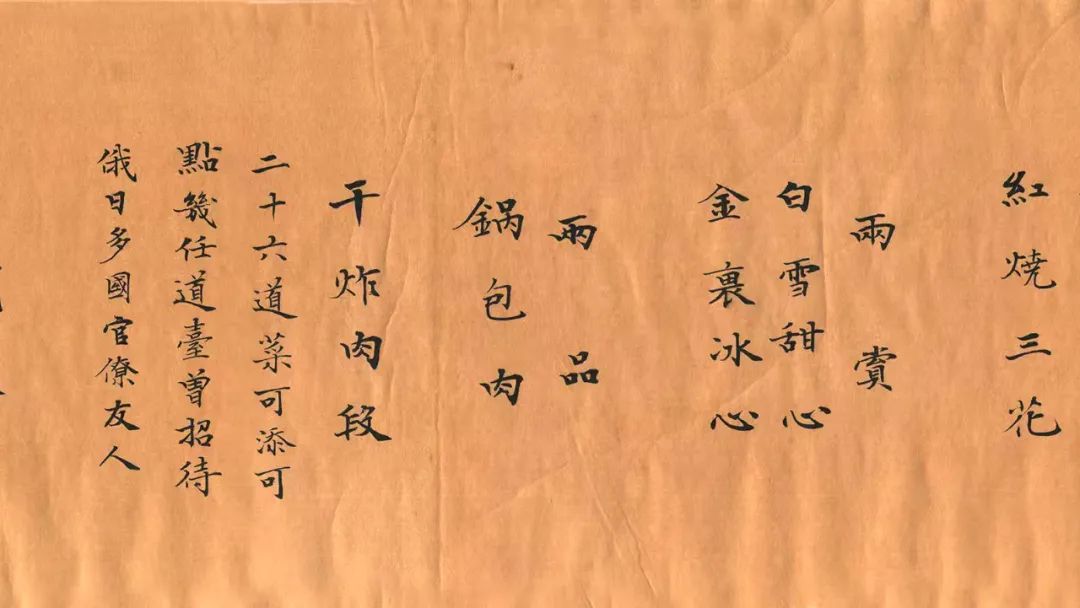 紅燒三花
兩賞
白雪甜心
金裏冰心
兩品
鍋包肉
干炸肉段
二十六道菜可添可
點幾任道臺曾招待
俄日多國官僚友人